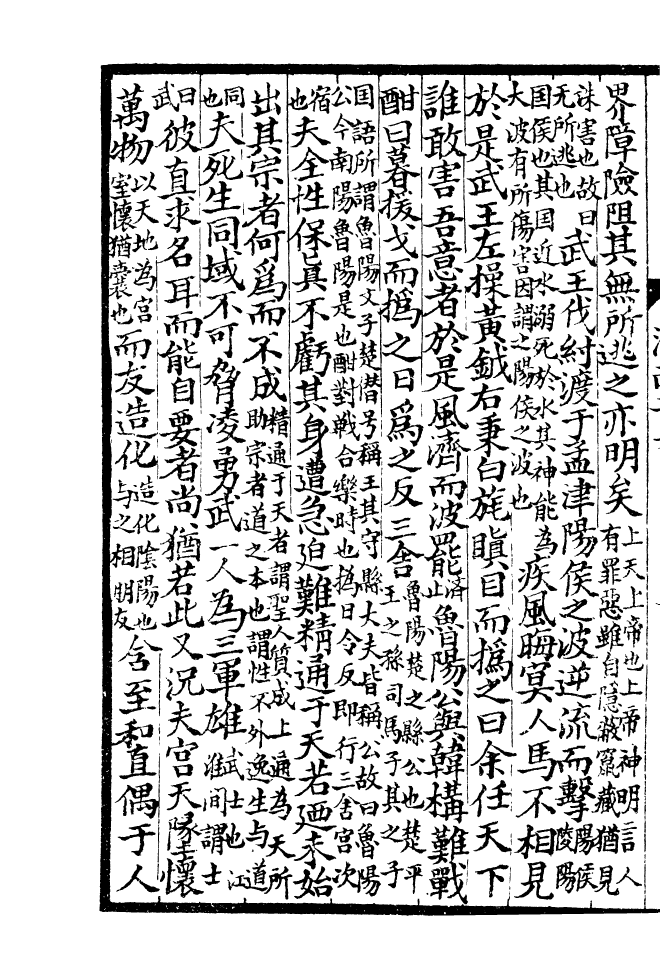 界障險阻其無所逃之亦明矣上天上帝也上帝神明言人有罪惡雖自隱蔽竄藏猶見
誅害也故曰无所逃也武王伐紂渡于孟津陽侯之波逆流而擊陽侯陵陽
国侯也其国近水溺死於水其神能為大波有所傷害因謂之陽侯之波也疾風晦冥人馬不相見
於是武王左操黃鉞右秉白旄瞋目而撝之曰余任天下
誰敢害吾意者於是風濟而波罷濟止魯陽公與韓構難戰
酣日暮援戈而撝之日為之反三舍魯陽楚之縣公也楚平王之孫司馬子其之子
国語所謂魯陽文子楚僣号稱王其守縣大夫皆稱公故曰魯陽公今南陽魯陽是也酣對戦合樂時也撝日令反即行三舍宮次
宿也夫全性保真不虧其身遭急迫難精通于天若廼未始
出其宗者何爲而不成精通于天者謂聖人質成上通為天所助宗者道之本也謂性不外逸生与道
同也夫死生同域不可脅凌勇武一人為三軍雄武士也江淮間謂士
曰武彼直求名耳而能自要者尚猶若此又況夫宫天隧懷
萬物以天地為宮室懷猶囊也而友造化造化陰陽也与之相朋友含至和直偶于人